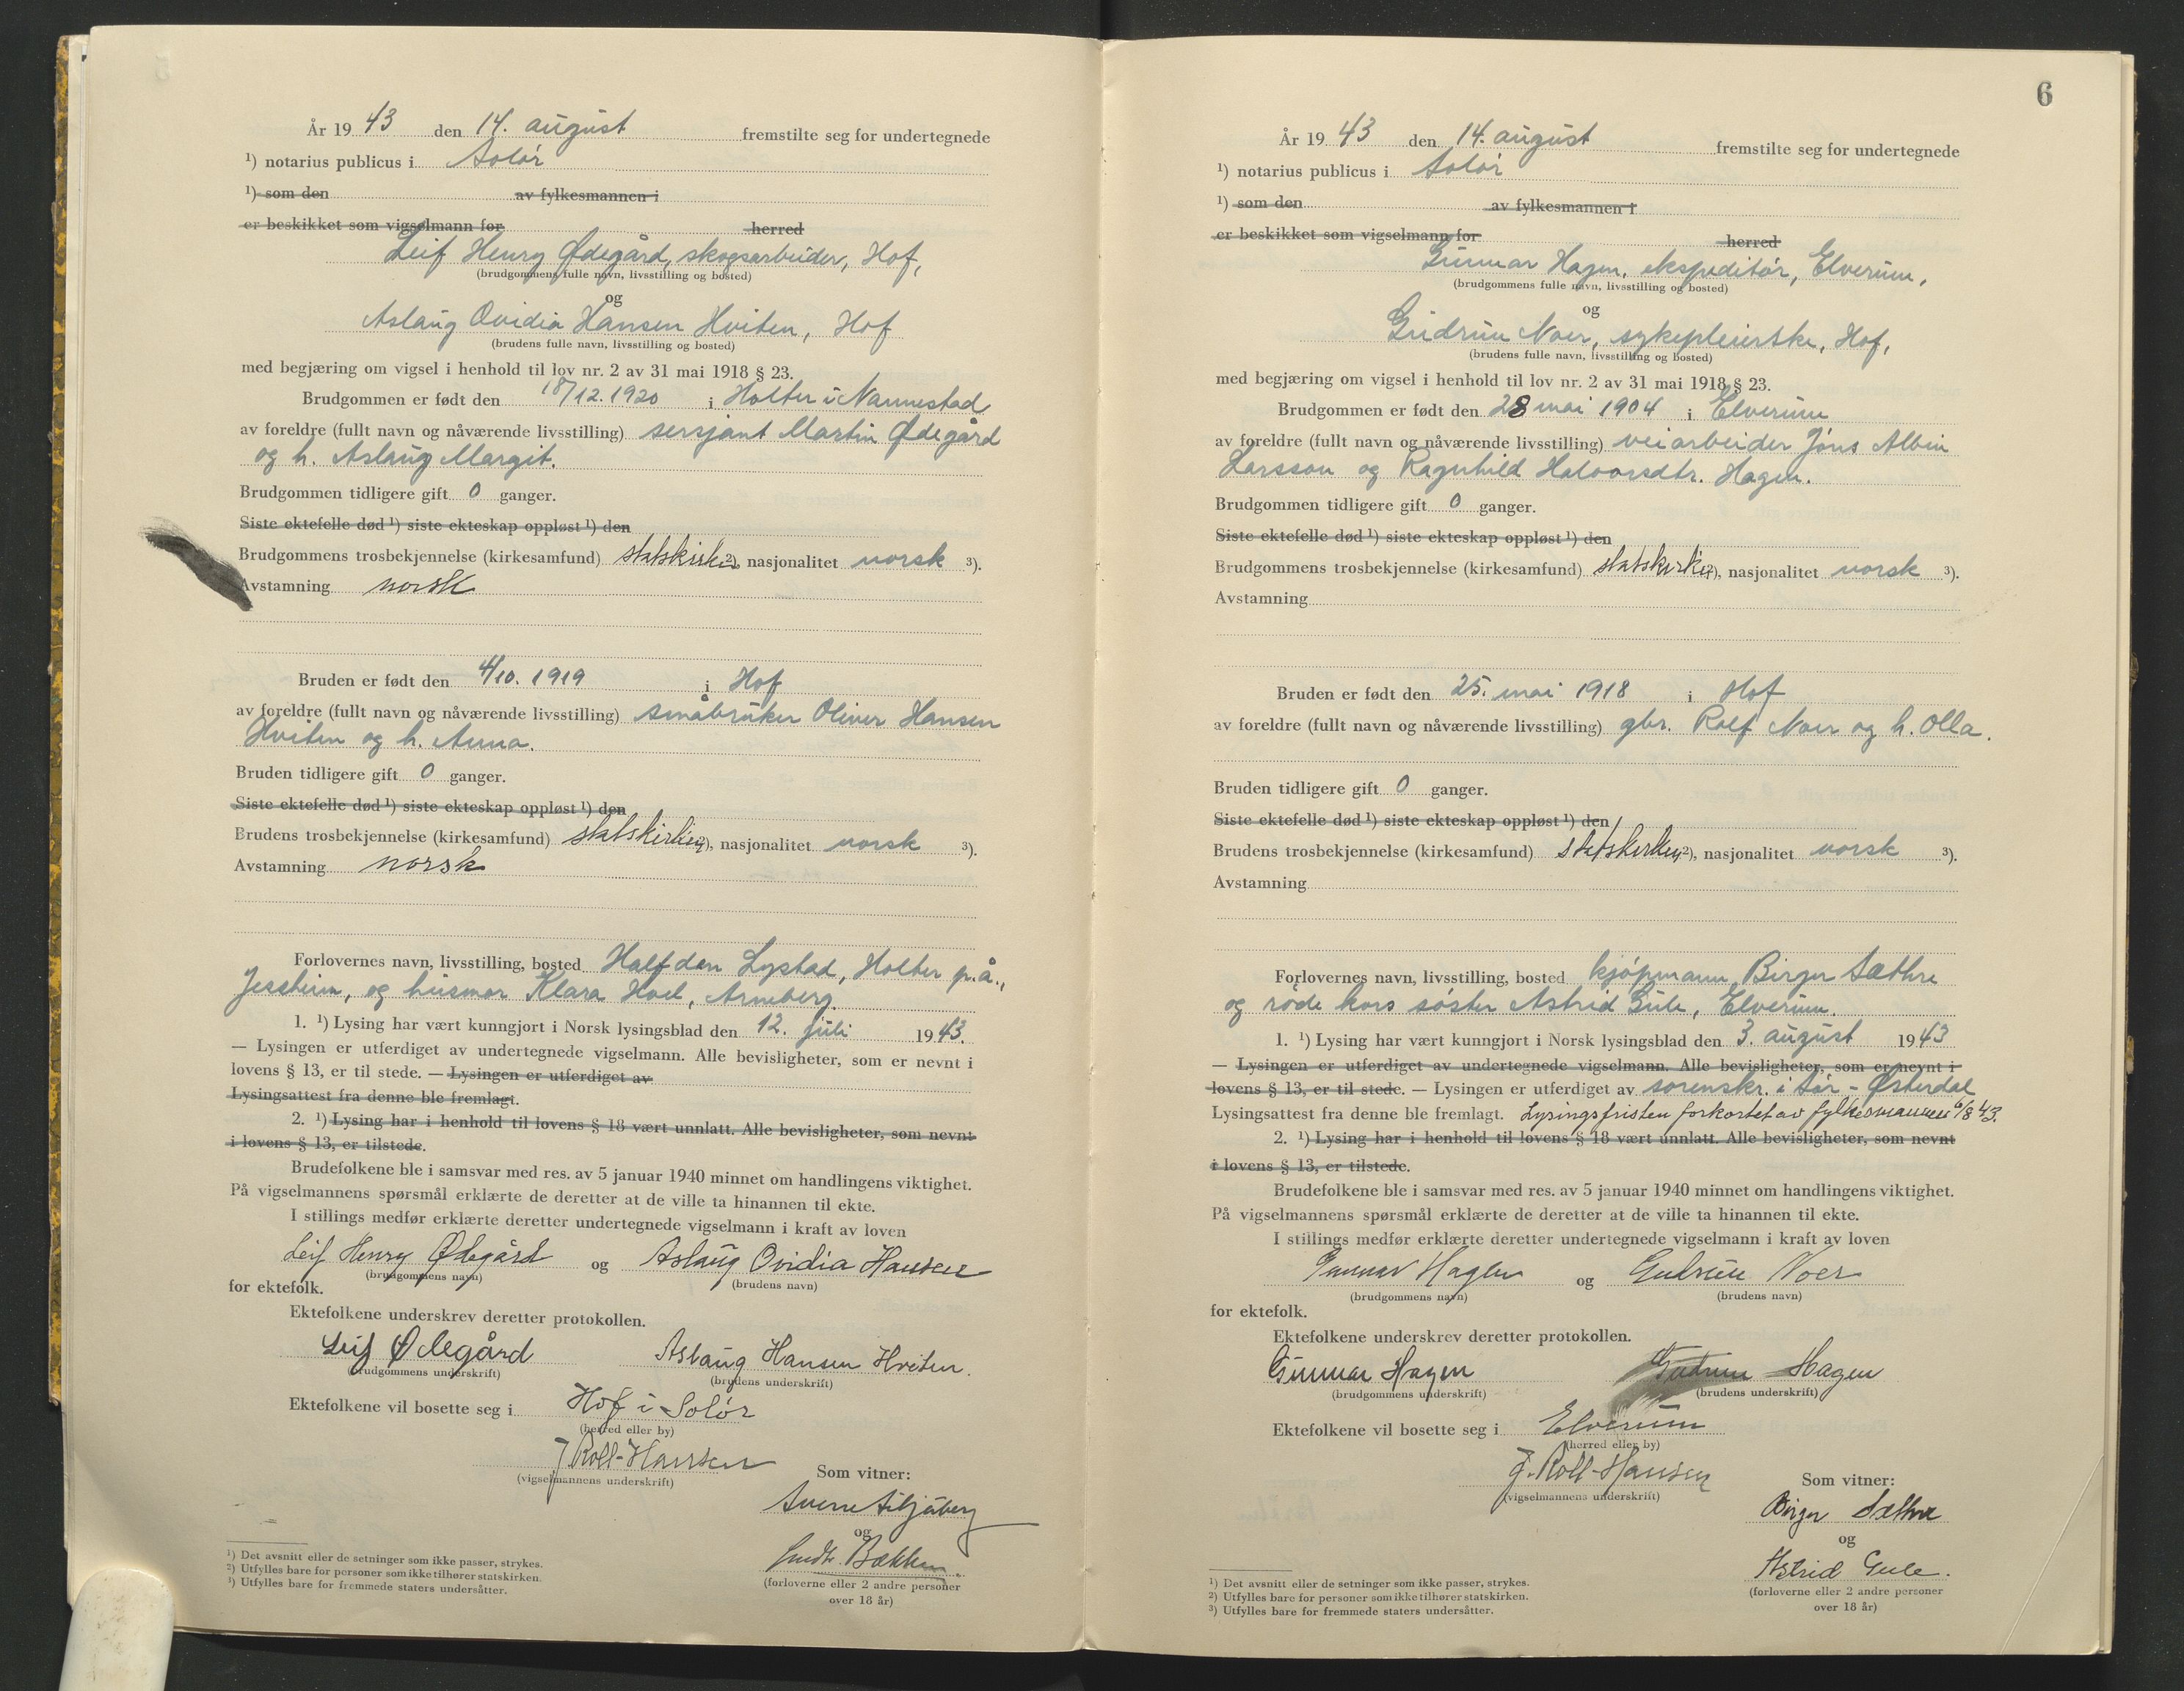 År 19 43 den 14. august fremstilte seg for undertegnede
¹) notarius publicus i Solør
¹) som den av fylkesmannen i
er beskikket som vigselmann for herred
Leif Henry Ødegård, skogsarbeider, Hof,
(brudgommens fulle navn, livsstilling og bosted)
og
Aslaug Ovidia Hansen Hviten, Hof
(brudens fulle navn, livsstilling og bosted)
med begjæring om vigsel i henhold til lov nr. 2 av 31 mai 1918 § 23.
Brudgommen er født den 18/12. 1920 i Holter i Nannestad
av foreldre (fullt navn og nåværende livsstilling) sersjant Martin Ødegård
og h. Aslaug Margit.
Brudgommen tidligere gift 0 ganger.
Siste ektefelle død ¹) siste ekteskap oppløst ¹) den
Brudgommens trosbekjennelse (kirkesamfund) statskirken ²), nasjonalitet norsk ³).
Avstamning norsk
Bruden er født den 4/10. 1919 i Hof
av foreldre (fullt navn og nåværende livsstilling) småbruker Oliver Hansen
Hviten og h. Anna.
Bruden tidligere gift 0 ganger.
Siste ektefelle død ¹) siste ekteskap oppløst ¹) den
Brudens trosbekjennelse (kirkesamfund) statskirken ²), nasjonalitet norsk ³).
Avstamning norsk
Forlovernes navn, livsstilling, bosted Halfdan Lystad, Holter p.å.,
Jessheim, og husmor Klara Hoel, Arneberg.
1. ¹) Lysing har vært kunngjort i Norsk lysingsblad den 12. juli 19 43.
— Lysingen er utferdiget av undertegnede vigselmann. Alle bevisligheter, som er nevnt i
lovens § 13, er til stede. — Lysingen er utferdiget av
Lysingsattest fra denne ble fremlagt.
2. ¹) Lysing har i henhold til lovens § 18 vært unnlatt. Alle bevisligheter, som nevnt
i lovens § 13, er tilstede.
Brudefolkene ble i samsvar med res. av 5 januar 1940 minnet om handlingens viktighet.
På vigselmannens spørsmål erklærte de deretter at de ville ta hinannen til ekte.
I stillings medfør erklærte deretter undertegnede vigselmann i kraft av loven
Leif Henry Ødegård og Aslaug Ovidia Hansen
(brudgommens navn) (brudens navn)
for ektefolk.
Ektefolkene underskrev deretter protokollen.
Leif Ødegård Aslaug Hansen Hviten.
(brudgommens underskrift) (brudens underskrift)
Ektefolkene vil bosette seg i Hof i Solør
(herred eller by)
J Roll-Hansen
(vigselmannens underskrift)
Som vitner:
Sverre
og
Bækken
(forloverne eller 2 andre personer
over 18 år)
¹) Det avsnitt eller de setninger som ikke passer, strykes.
²) Utfylles bare for personer som ikke tilhører statskirken.
³) Utfylles bare for fremmede staters undersåtter.
6
År 19 43 den 14. august fremstilte seg for undertegnede
¹) notarius publicus i Solør
¹) som den av fylkesmannen i
er beskikket som vigselmann for herred
Gunnar Hagen, ekspeditør, Elverum,
(brudgommens fulle navn, livsstilling og bosted)
og
Gudrun Noer, sykepleierske, Hof,
(brudens fulle navn, livsstilling og bosted)
med begjæring om vigsel i henhold til lov nr. 2 av 31 mai 1918 § 23.
Brudgommen er født den 28 mai 1904 i Elverum
av foreldre (fullt navn og nåværende livsstilling) veiarbeider Jøns Albin
Larsson og Ragnhild Halvorsdtr. Hagen.
Brudgommen tidligere gift 0 ganger.
Siste ektefelle død ¹) siste ekteskap oppløst ¹) den
Brudgommens trosbekjennelse (kirkesamfund) statskirken ²), nasjonalitet norsk ³).
Avstamning
Bruden er født den 25. mai 1918 i Hof
av foreldre (fullt navn og nåværende livsstilling) gbr. Rolf Noer og h. Olla.
Bruden tidligere gift 0 ganger.
Siste ektefelle død ¹) siste ekteskap oppløst ¹) den
Brudens trosbekjennelse (kirkesamfund) statskirken ²), nasjonalitet norsk ³).
Avstamning
Forlovernes navn, livsstilling, bosted kjøpmann Birger Sæthre
og røde kors søster Astrid Gule, Elverum.
1. ¹) Lysing har vært kunngjort i Norsk lysingsblad den 3. august 19 43
— Lysingen er utferdiget av undertegnede vigselmann. Alle bevisligheter, som er nevnt i
lovens § 13, er til stede. — Lysingen er utferdiget av sorenskr. i Sør-Østerdal
Lysingsattest fra denne ble fremlagt. Lysingsfristen forkortet av fylkesmannen 6/8 43.
2. ¹) Lysing har i henhold til lovens § 18 vært unnlatt. Alle bevisligheter, som nevnt
i lovens § 13, er tilstede.
Brudefolkene ble i samsvar med res. av 5 januar 1940 minnet om handlingens viktighet.
På vigselmannens spørsmål erklærte de deretter at de ville ta hinannen til ekte.
I stillings medfør erklærte deretter undertegnede vigselmann i kraft av loven
Gunnar Hagen og Gudrun Noer
(brudgommens navn) (brudens navn)
for ektefolk.
Ektefolkene underskrev deretter protokollen.
Gunnar Hagen Gudrun Hagen
(brudgommens underskrift) (brudens underskrift)
Ektefolkene vil bosette seg i Elverum
(herred eller by)
J. Roll-Hansen
(vigselmannens underskrift)
Som vitner:
Birger Sæthre
og
Astrid Gule.
(forloverne eller 2 andre personer
over 18 år)
¹) Det avsnitt eller de setninger som ikke passer, strykes.
²) Utfylles bare for personer som ikke tilhører statskirken.
³) Utfylles bare for fremmede staters undersåtter.